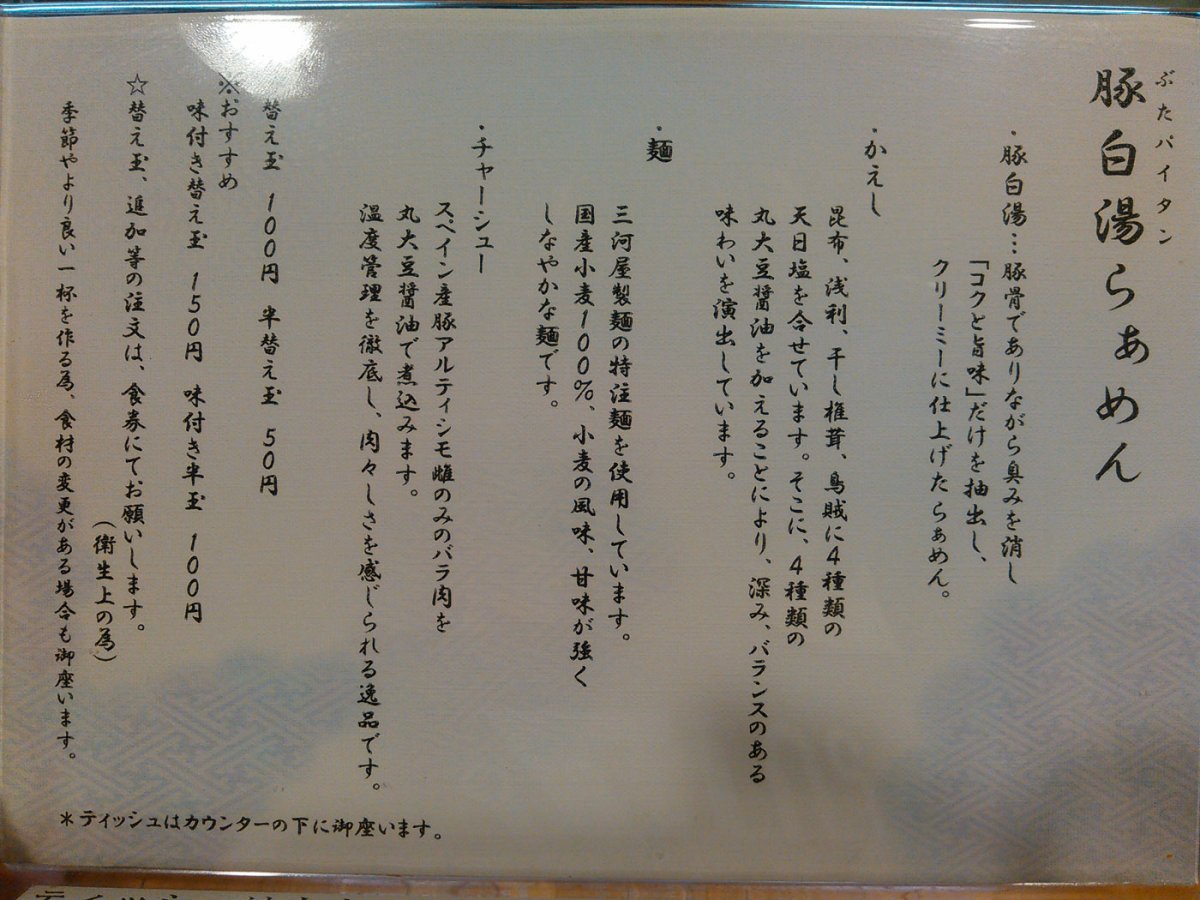 ぶたパイタン
豚白湯らぁめん
・豚白湯…豚骨でありながら臭みを消し
「コクと旨味」だけを抽出し、
クリーミーに仕上げたらぁめん。
・かえし
昆布、浅利、干し椎茸、烏賊に4種類の
天日塩を合せています。そこに、4種類の
丸大豆醤油を加えることにより、深み、バランスのある
味わいを演出しています。
・麺
三河屋製麺の特注麺を使用しています。
国産小麦100%、小麦の風味、甘味が強く
しなやかな麺です。
・チャーシュー
スペイン産豚アルティシモ雌のみのバラ肉を
丸大豆醤油で煮込みます。
温度管理を徹底し、肉々しさを感じられる逸品です。
替え玉 100円 半替え玉 50円
※おすすめ
味付き替え玉 150円 味付き半玉 100円
☆替え玉、追加等の注文は、食券にてお願いします。
(衛生上の為)
季節やより良い一杯を作る為、食材の変更がある場合も御座います。
*ティッシュはカウンターの下に御座います。